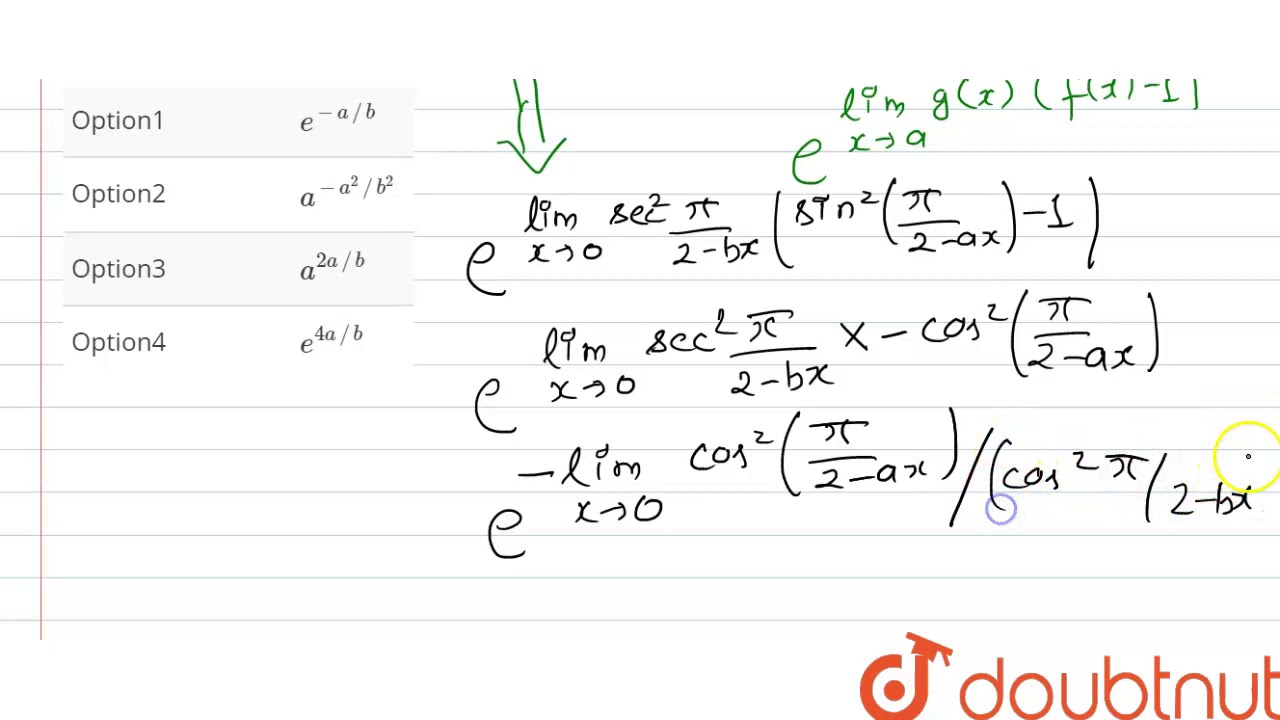 Option1 e^{-a/b}
Option2 a^{-a^2/b^2}
Option3 a^{2a/b}
Option4 e^{4a/b}
e^{lim x→a g(x) (f(x)-1]}
e^{lim x→0 sec² π/(2-bx) (sin²(π/(2-ax)) -1)}
e^{lim x→0 sec² π/(2-bx) × - cos²(π/(2-ax))}
e^{-lim x→0 cos²(π/(2-ax)) / (cos² π/2-bx}
doubtnut